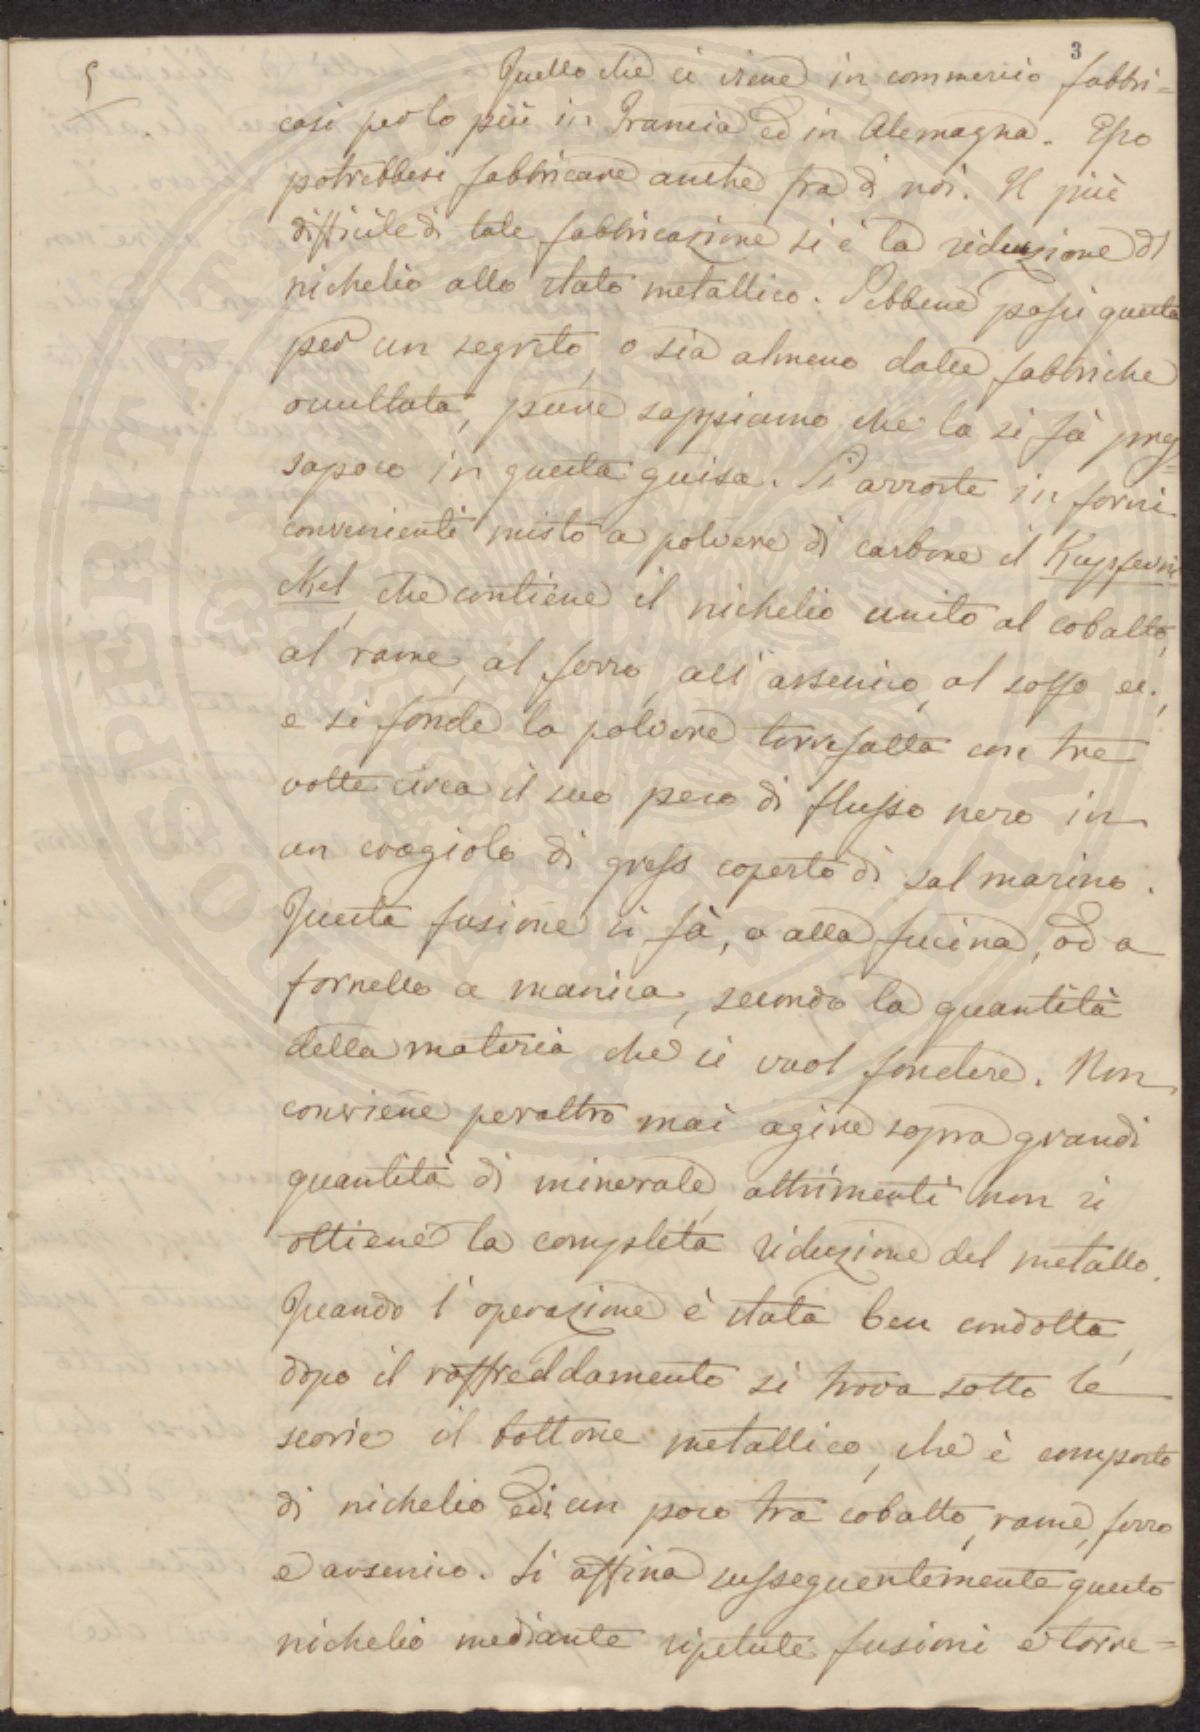 3
5
Quello che ci viene in commercio fabbri=
casi per lo più in Francia ed in Alemagna. Esso
potrebbesi fabbricare anche fra di noi. Il più
difficile di tale fabbricazione si è la riduzione di
nichelio allo stato metallico. Sebbene passi questa
per un segreto, o sia almeno dalle fabbriche
occultata, pure sappiamo che la si fà pres=
sapoco in questa guisa. Si arroste in forni
convenienti misto a polvere di carbone il Kupferni
ckel, che contiene il nichelio unito al cobalto,
al rame, al ferro, all'arsenico, al solfo ec.,
e si fonde la polvere torrefatta con tre
volte circa il suo peso di flusso nero in
un crogiolo di gress coperto di sal marino.
Questa fusione si fà, o alla fucina, od a
fornello a manica, secondo la quantità
della materia che si vuol fondere. Non
conviene peraltro mai agire sopra grandi
quantità di minerale, altrimenti non si
ottiene la completa riduzione del metallo.
Quando l'operazione è stata ben condotta,
dopo il raffreddamento si trova sotto le
scorie il bottone metallico, che è composto
di nichelio ed un poco tra cobalto, rame, ferro
e arsenico. Si affina susseguentemente questo
nichelio mediante ripetute fusioni e torre=